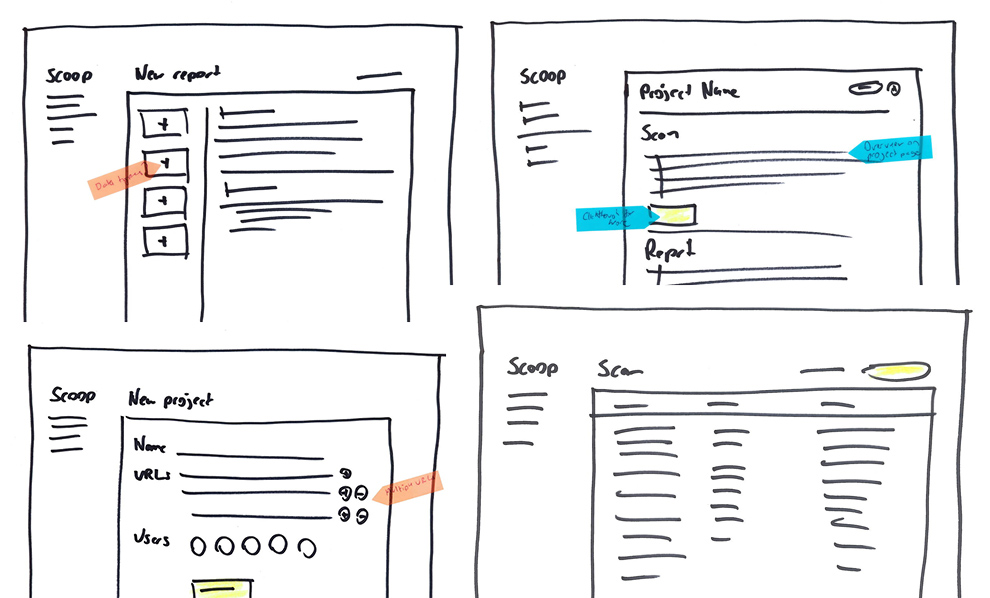 Scoop
New report
Data types
Scoop
Project Name
Scan
Overview on
project page
Clickthrough for
more
Report
Scoop
New project
Name
URLs
Multiple URLs
Users
Scoop
Scan